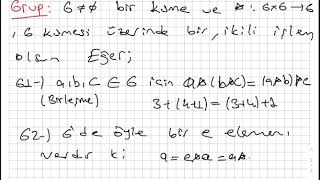 Grup: G≠∅ bir küme ve ☆: G×G→G
, G kümesi üzerinde bir, ikili işlem
olsun Eğer;
G1-) a,b,c ∈ G için a☆(b☆c)=(a☆b)☆c
(Birleşme) 3+(4+1)=(3+4)+1
G2-) G'de öyle bir e elemen
vardır ki a=e☆a=a☆